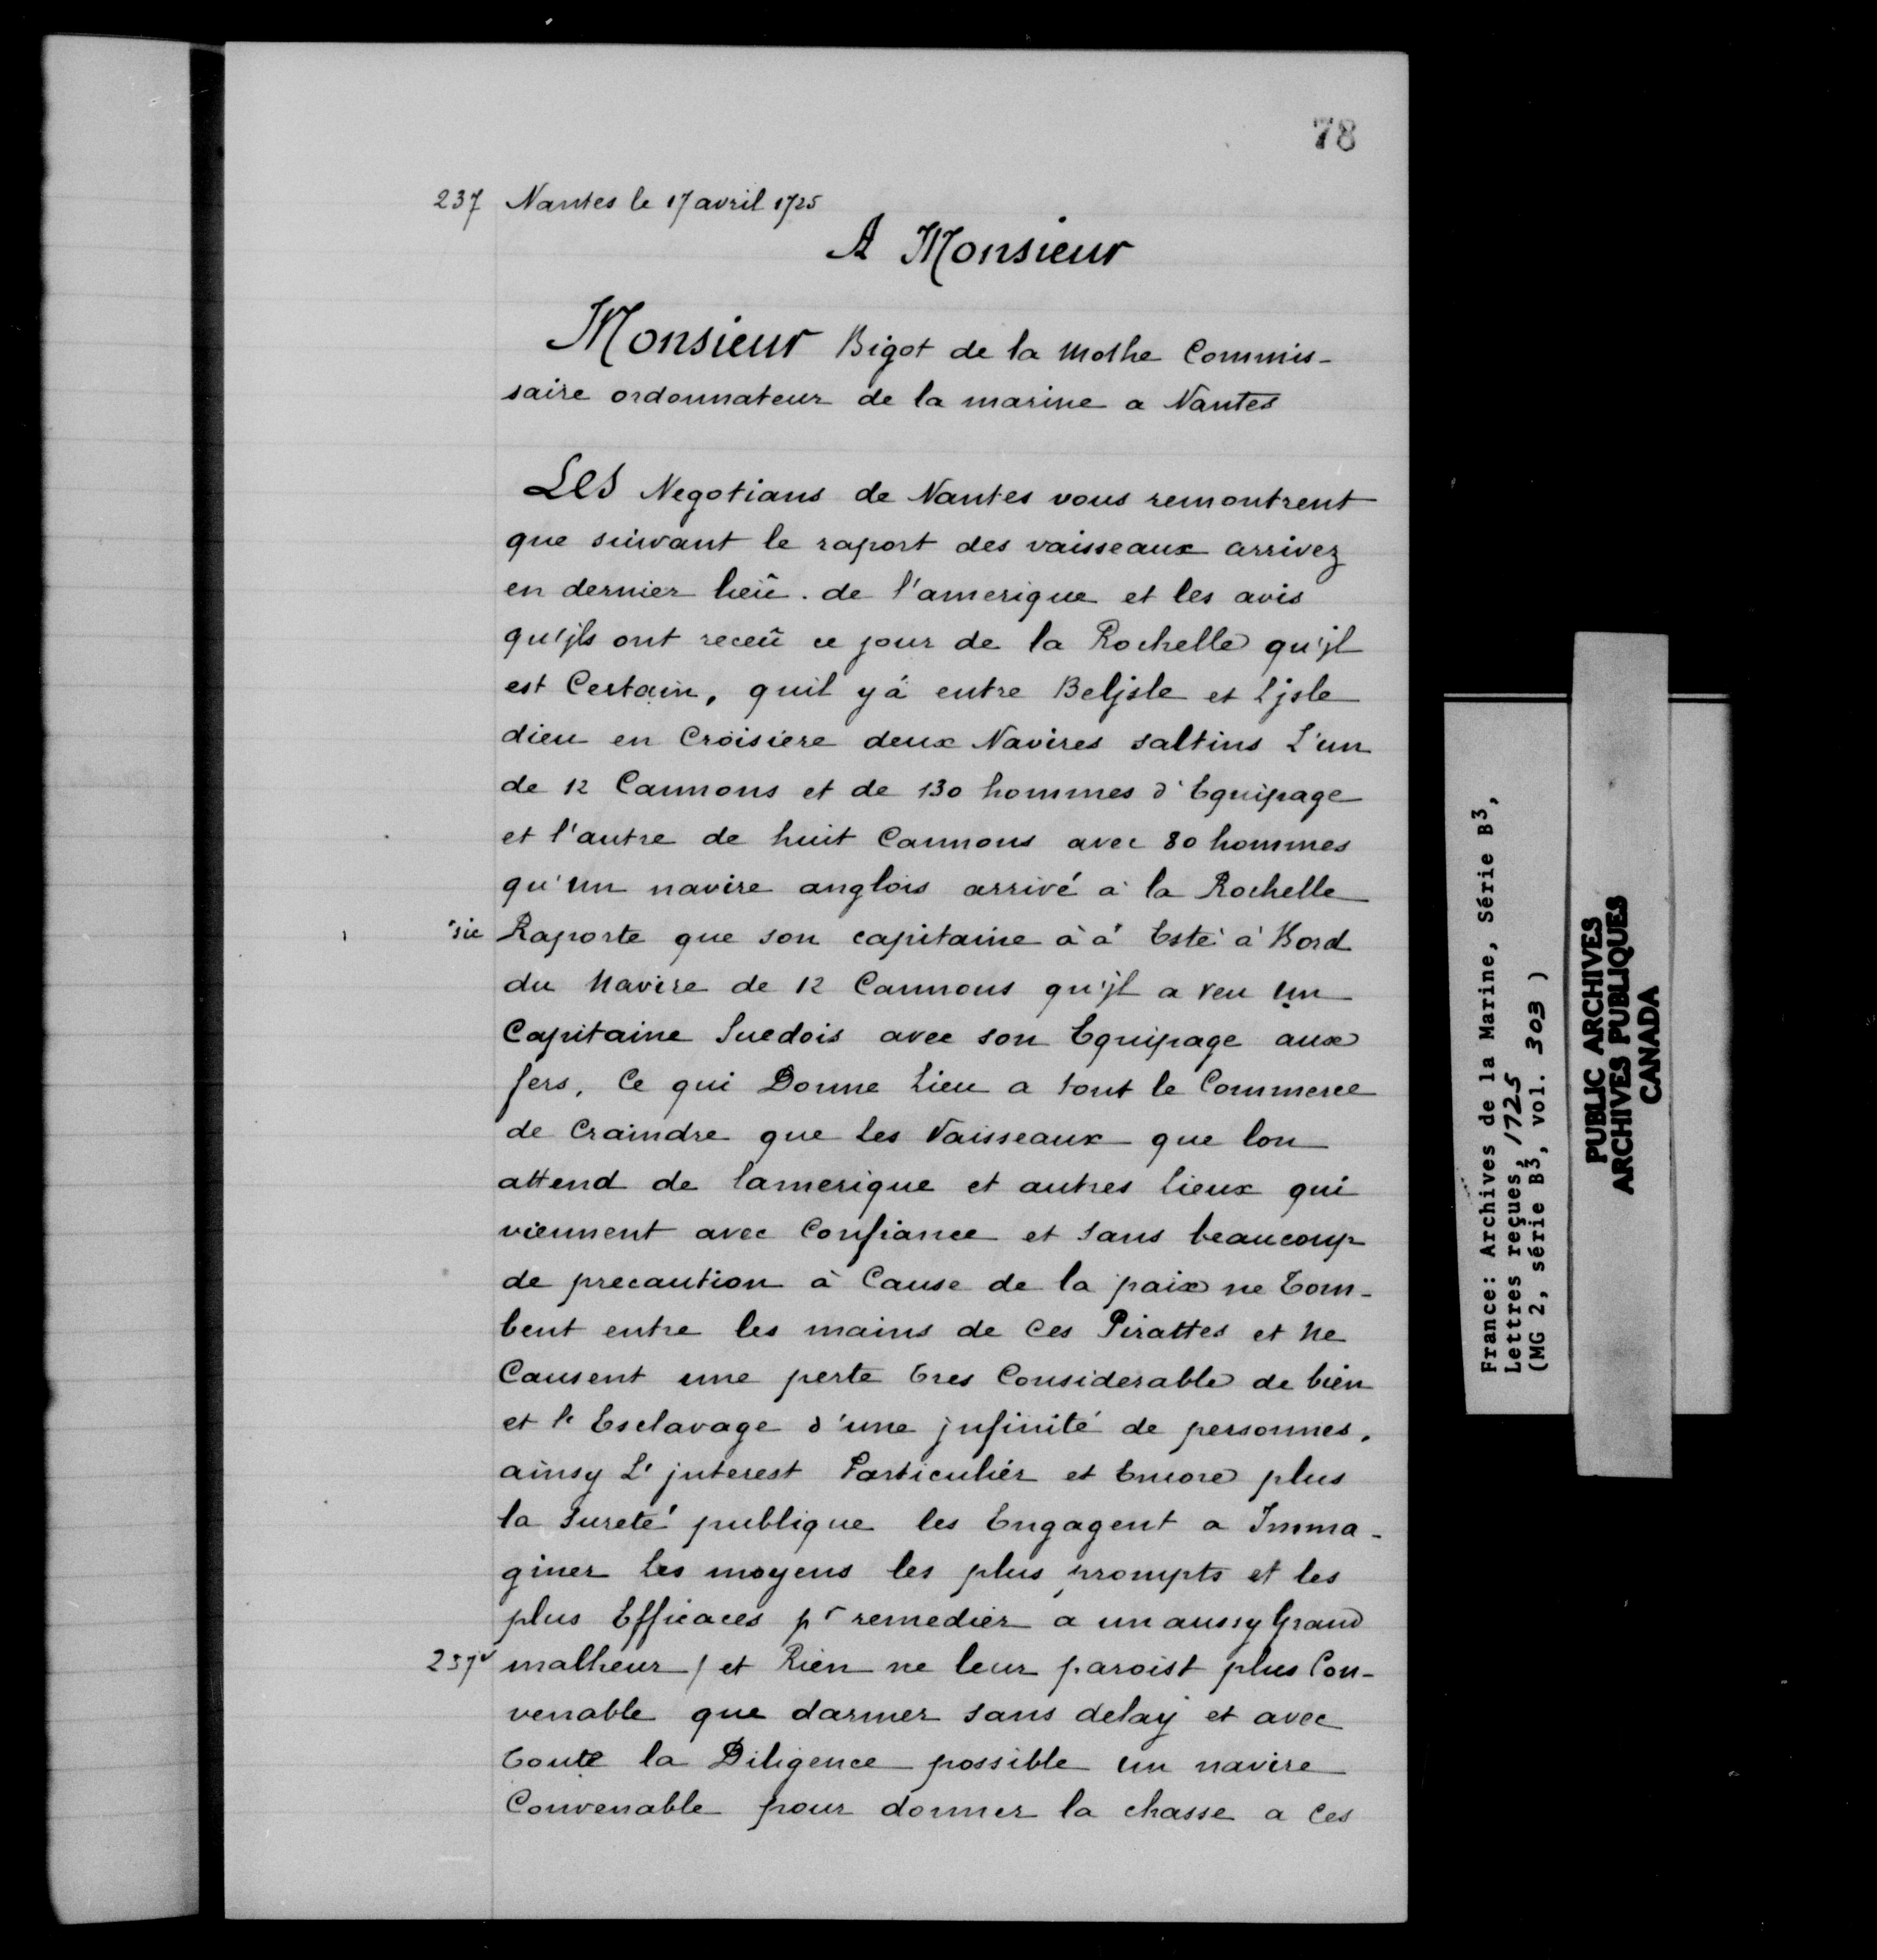 78
237 Nantes le 17 avril 1725
A Monsieur
Monsieur Bigot de la Mothe Commis-
saire ordonnateur de la marine a Nantes
Les Negotians de Nantes vous remontrent
que suivant le raport des vaisseaux arrivez
en dernier lieû. de l'amerique et les avis
qu'jls ont receû ce jour de la Rochelle qu'jl
est Certain, quil y á entre Beljsle et Ljsle
dieu en Croisiere deux Navires saltins L'un
de 12 Cannons et de 130 hommes d'Equipage
et l'autre de huit Cannons avec 80 hommes
qu'un navire anglois arrivé à la Rochelle
sic Raporte que son capitaine à à Esté à Bord
du Navire de 12 Cannons qu'jl a veu un
Capitaine Suedois avec son Equipage aux
fers. Ce qui Donne Lieu a tout le Commerce
de Craindre que Les Vaisseaux que lon
attend de lamerique et autres Lieux qui
viennent avec Confiance et sans beaucoup
de precaution à Cause de la paix ne tom-
bent entre les mains de Ces Pirattes et ne
Causent une perte tres Considerable de bien
et l'Esclavage d'une jnfinité de personnes.
ainsy L'jnterest Particulier et Encore plus
la Sureté publique les Engagent a Imma-
giner les moyens les plus prompts et les
plus Efficaces pr remedier a un aussy Grand
237v malheur / et Rien ne leur paroist plus Con-
venable que darmer sans delay et avec
toute la Diligence possible un navire
Convenable pour donner la chasse a Ces
France: Archives de la Marine, Série B3,
Lettres reçues, 1725
(MG 2, série B3, vol. 303 )
PUBLIC ARCHIVES
ARCHIVES PUBLIQUES
CANADA